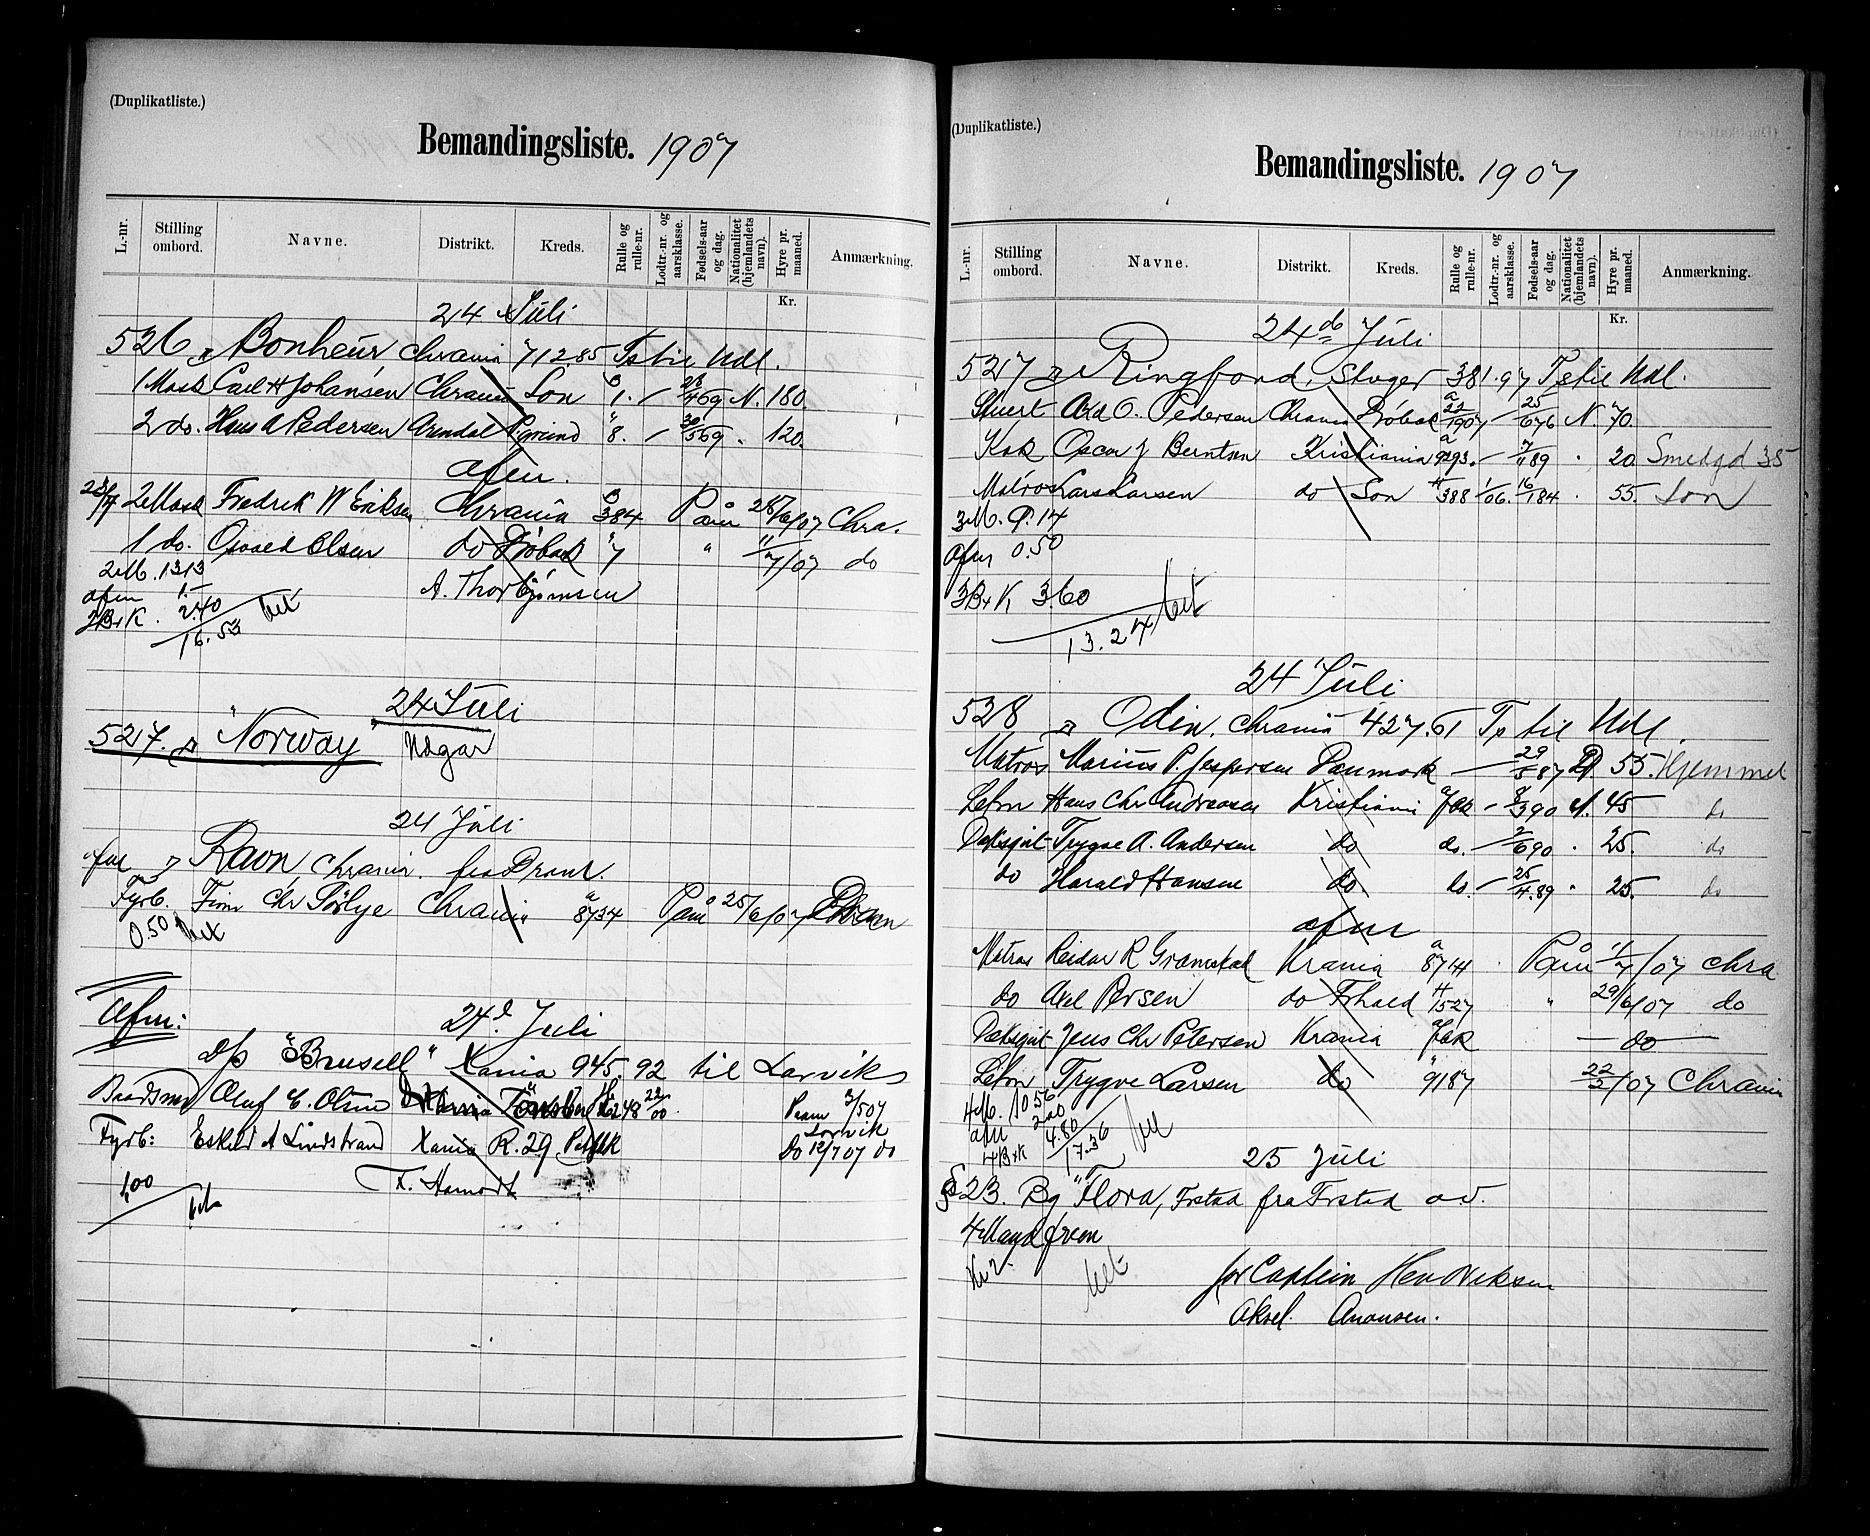 (Duplikatliste.)
Bemandingsliste. 1907
L.-nr. Stilling ombord. Navne. Distrikt. Kreds. Rulle og rulle-nr. Lodtr.-nr. og aarsklasse. Fødsels-aar og dag. Nationalitet (hjemlandets navn). Hyre pr. maaned. Anmærkning.
Kr.
24 Juli
526 Bonheur Chrania 71285 Ts til Udl.
1 Mask Carl H Johansen Chrania Son 1. 469 N. 180.
2 do. Hans A Pedersen Arendal 8. 30/5 69 120.
afm.
2 Mask Fredrik W Eriksen Chrania 384 Paam 28/6/07 Chra.
1 do. Osvald Olsen do Drøbak 7 " 11/7/07 do
2 M. 13.13
afm 1.-
A. Thorbjørnsen
2 B+K. 2.40
16.53 bet
24 Juli
527. "Norway"
Udgaar
24 Juli
afm Ravn, Chrania. fra Dram.
Fyrb. Finn Chr Sørlye Chrania 8734 Paam 25/6/07 Dram
0.50 bet
Afm: 24d Juli
D/s "Brusell" Xania 945.92 til Larvik
Baadsmd Oluf C. Olsen Tönsberg 248 22/00. Paam 3/5 07 Larvik
Fyrb: Eskild A Lindstrand Xania R. 29. Do 12/7 07 do
1,00 T. Hamodt
(Duplikatliste.)
Bemandingsliste. 1907
L.-nr. Stilling ombord. Navne. Distrikt. Kreds. Rulle og rulle-nr. Lodtr.-nr. og aarsklasse. Fødsels-aar og dag. Nationalitet (hjemlandets navn). Hyre pr. maaned. Anmærkning.
Kr.
24 do Juli
527 Ringfond, Stvger 381.97 Ts til Udl.
Stuert Ard O. Pedersen Chrania Drøbak 22/1907 25/6 76 N. 70.
Kok Oscar J Berntsen Kristiania 9293. 7/11 89 20. Smedgd 35
Matros Lars Larsen do Son 388 1/06. 16/1 84 55. Son
3 M. P. 14
afm 0.50
3 B+K 3.60
13.24 bet
24 Juli
528 Odin, Chrania 427.61 Ts til Udl.
Matros Marius P. Jespersen Danmark 29/5 87 D 55. Hjemmel
Letm Hans Chr Andreasen Kristiania 8/3 90 N. 45 do
Dæksgut Trygve A. Andersen do do. 2/6 90 25. do
do Harald Hansen do. do. 25/4.89 25. do
afm
Matros Reidar R Gramstad Krania 8714 Paam 11/7/07 Chra
do Axel Persen do Frhald 1527 " 29/6/07 do
Dæksgut Jens Chr Petersen Krania do
Letm Trygve Larsen do 9187 22/5/07 Chrania
4 M. 10 56
afm 2.00
4 B+K 4.80
17.36 bet
25 Juli
§23. Bg "Flora, Frstad fra Frstad o.v.
4 Mand frem
Kr 2. bet
for Captein Hendriksen
Aksel. Anonsen.